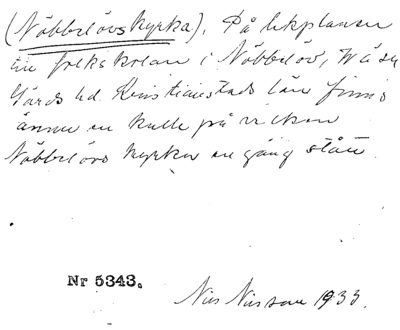 (Nöbbelövs kyrka). På lekplansen
till folkskolan i Nöbbelöv, Wä sn
Gärds hd. Kristianstads län finns
ännu en kulle på vilken
Nöbbelövs kyrka en gång stått.
Nr 5343.
Nils Nilsson 1933.